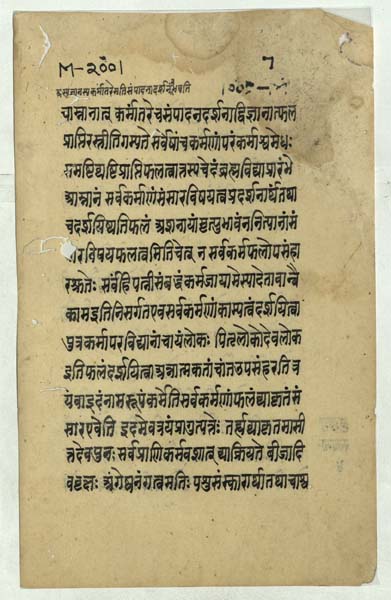 M-२००१ 7
याम्नानात् कर्मांतरे च संपादनदर्शनाद्विज्ञानात्फल
प्राप्तिरस्तीति गम्यते सर्वेषां च कर्मणां परं कर्माश्वमेधः
समष्टिव्यष्टिप्राप्तिफलत्वात् तस्य चेह ब्रह्मविद्याप्रारंभे
आम्नानं सर्वकर्मणां संसारविषयत्वप्रदर्शनार्थं तथा
च दर्शयिष्यति फलं अशनायामृत्युभावं न नित्यानां सं
सारविषयफलत्वमिति चेत् न सर्वकर्मफलोपसंहा
रश्रुतेः सर्वं हि पत्नीसंबद्धं कर्म जाया मे स्यादेतावान्वै
काम इति निसर्गत एव सर्वकर्मणां काम्यत्वं दर्शयित्वा
पुत्रकर्मापरविद्यानां चायं लोकः पितृलोको देवलोक
इति फलं दर्शयित्वा त्र्यन्नात्मकतां चांत उपसंहरति त्र
यं वा इदं नाम रूपं कर्मेति सर्वकर्मणां फलं व्याकृतं सं
सार एवेति इदमेव त्रयं प्रागुत्पत्तेः तर्ह्यव्याकृतमासी
त्तदेव पुनः सर्वप्राणिकर्मवशात् व्याक्रियते बीजादि
व वृक्षः